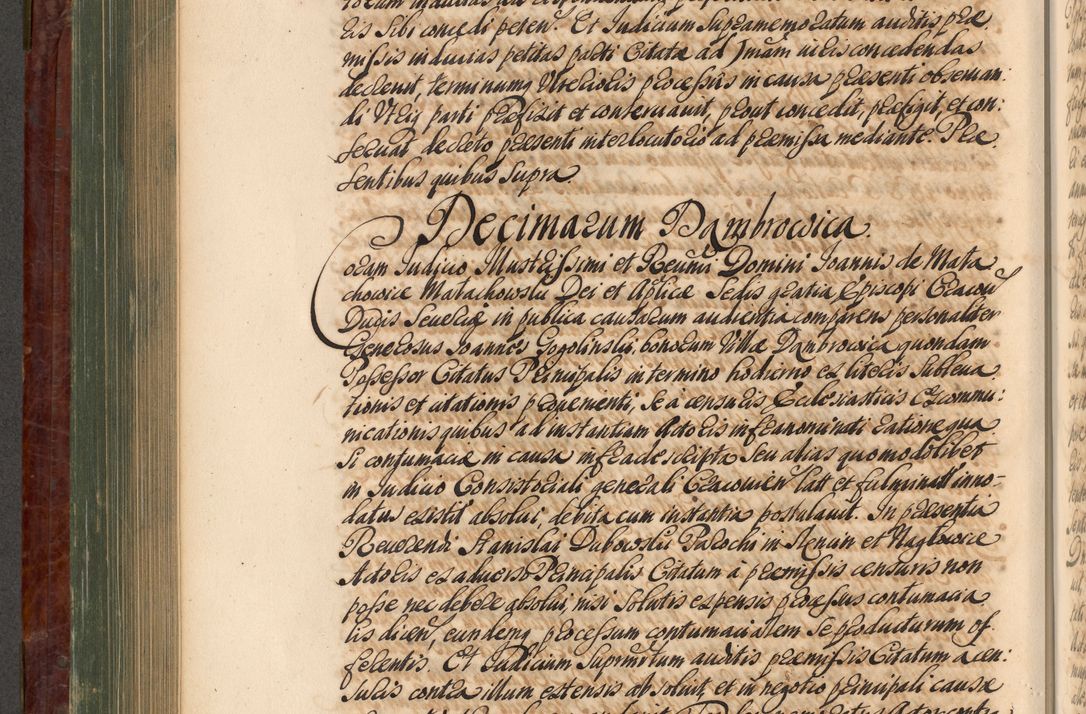 ris sibi concedi peten. Et Judicium supramemoratum auditis præ
missis inducias petitas parti Citatæ ad primam iuris concedendas
decrevit, terminumq Ulterioris processus in causa præsenti observan:
di Utriq parti præfixit et conservavit, prout concedit, præfigit, et con:
servat decreto præsenti interlocutorio ad præmissa mediante. Præ
sentibus quibus supra.
Decimarum Dambrowica
Coram Judicio Illustrissimi et Reverendissimi Domini Joannis de Mała
chowice Małachowski Dei et Aplicæ Sedis gratia Episcopi Cracovien
Ducis Severiæ in publica causarum audientia comparens personaliter
Generosus Joannes Gogolinski, bonorum Villæ Dambrowica quondam
Possessor Citatus Principalis in termino hodierno ex literis subleva
tionis et citationis provenienti, se a censuris Ecclesiasticis Excommu:
nicationis quibus ad instantiam Actoris infranominati ratione qua
si contumaciæ in causa infradescripta seu alias quomodolibet
in Judicio Consistoriali generali Cracovien latt et fulminatt inno-
datus extitit absolvi, debita cum instantia postulavit. In præsentia
Reverendi Stanislai Dubowski Parochi in et Nagłowice
Actoris ex adverso Principalis Citatum a præmissis censuris non
posse nec debere absolvi, nisi solutis expensis processus contumacia
lis dicen, eundemq processum contumacialem se producturum of
ferentis. Et Judicium suprmtum auditis præmissis Citatum a cen:
suris contra illum extensis absolvit, et in negotio principali causæ